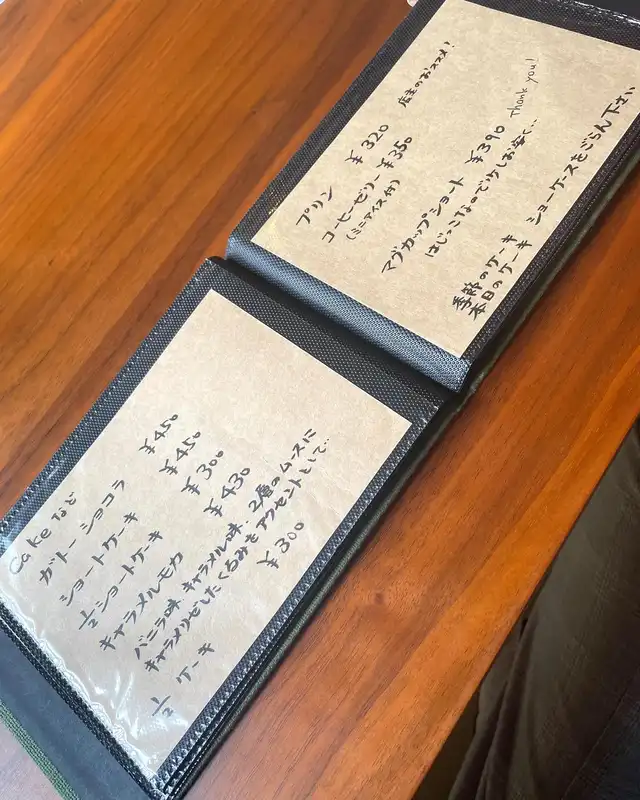 Cakeなど
ガトーショコラ ¥450
ショートケーキ ¥450
½ショートケーキ ¥300
キャラメルモカ ¥430
バニラ味、キャラメル味、2層のムースに
キャラメリゼしたくるみをアクセントとして..
½ ケーキ ¥300
プリン ¥320 店主のおススメ!
コーヒーゼリー ¥350
(ミニアイス付)
マグカップショート ¥390 Thank you!
はじっこなので少しお安く..
季節のケーキ
本日のケーキ ショーケースをごらん下さい